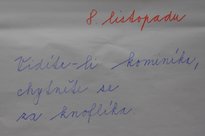 8 listopadu
Vidíte-li kominíka,
chytněte se
za knoflíka